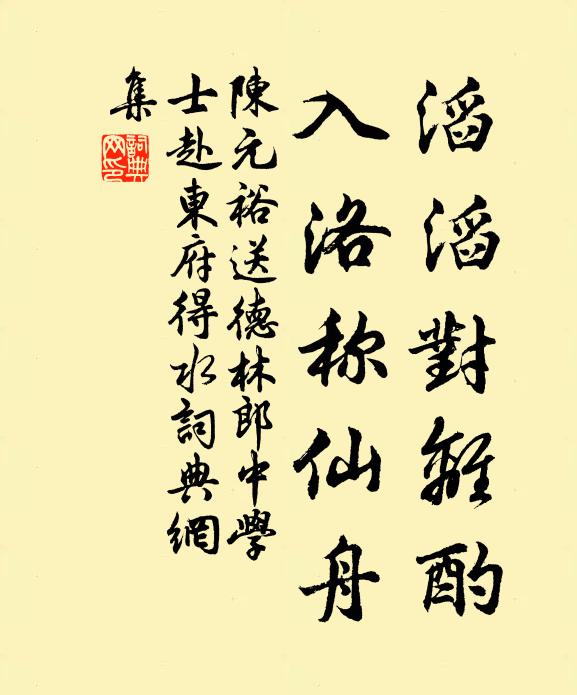 滔滔對離酌
入洛称仙舟
陳元裕送德林郎中學
士赴東府得水詞典網
集
詞典網印